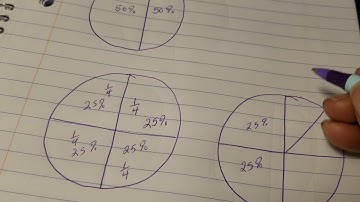 50% 50%
1/4 1/4
25% 25%
1/4 25%
25% 1/4
25%
25%